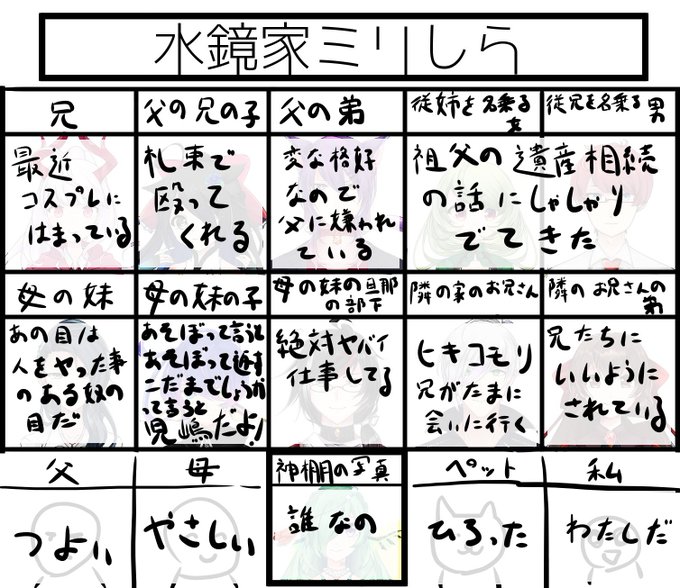 水鏡家ミリしら
兄
父の兄の子
父の弟
従姉を名乗る
女
従兄を名乗る男
最近
コスプレに
はまっている
札束で
殴って
くれる
変な格好
なので
父に嫌われ
ている
祖父の遺産相続
の話にしゃしゃり
でてきた
母の妹
母の妹の子
母の妹の旦那
の部下
隣の家のお兄さん
隣のお兄さんの
弟
あの目は
人をやった事
のある奴の
目だ
あそぼって言うと
あそぼって返す
こだまでしょうか
って言うと
児嶋だよ!
絶対ヤバイ
仕事してる
ヒキコモリ
兄がたまに
会いに行く
兄たちに
いいように
されている
父
母
神棚の写真
ペット
私
つよい
やさしい
誰なの
ひろった
わたしだ